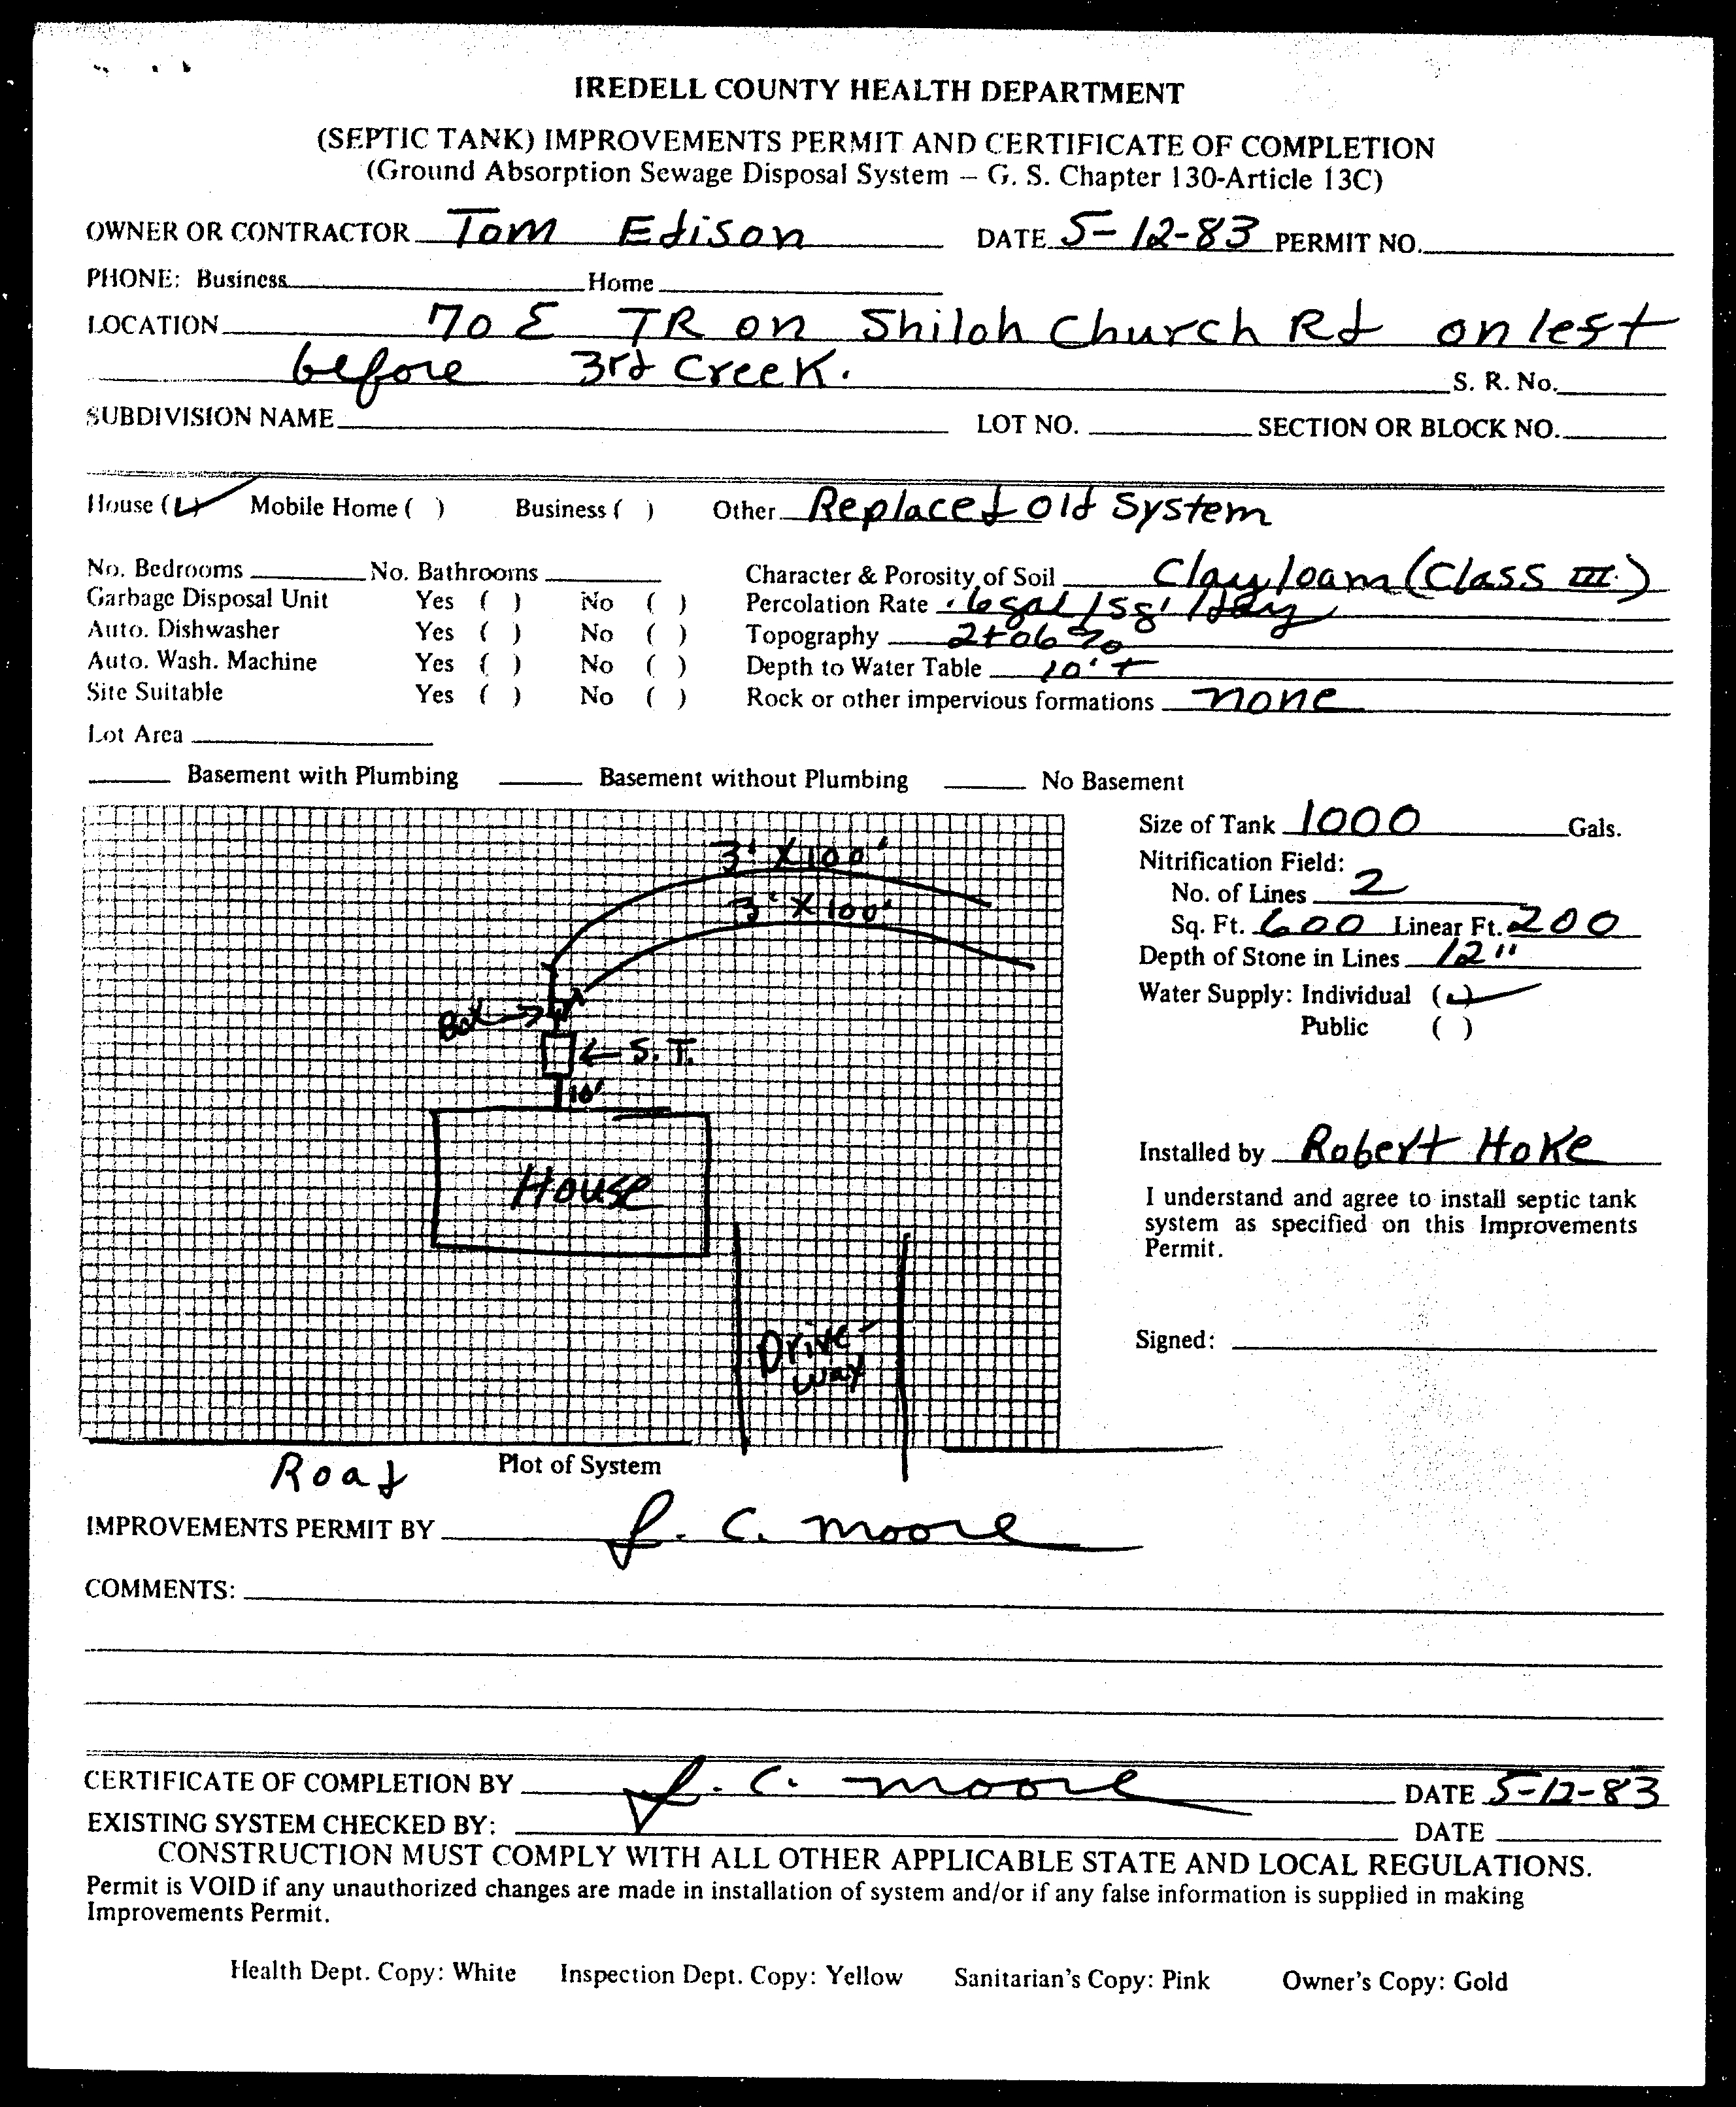 IREDELL COUNTY HEALTH DEPARTMENT
(SEPTIC TANK) IMPROVEMENTS PERMIT AND CERTIFICATE OF COMPLETION
(Ground Absorption Sewage Disposal System – G. S. Chapter 130-Article 13C)
OWNER OR CONTRACTOR Tom Edison DATE 5-12-83 PERMIT NO.
PHONE: Business Home
LOCATION 70 E TR on Shiloh Church Rd on left
before 3rd Creek. S. R. No.
SUBDIVISION NAME LOT NO. SECTION OR BLOCK NO.
House (✓) Mobile Home ( ) Business ( ) Other Replaced old System
No. Bedrooms No. Bathrooms Character & Porosity of Soil Clay loam (Class III)
Garbage Disposal Unit Yes ( ) No ( ) Percolation Rate .6gal/sq'/day
Auto. Dishwasher Yes ( ) No ( ) Topography 2to6%
Auto. Wash. Machine Yes ( ) No ( ) Depth to Water Table 10'+
Site Suitable Yes ( ) No ( ) Rock or other impervious formations none
Lot Area
Basement with Plumbing Basement without Plumbing No Basement
Size of Tank 1000 Gals.
Nitrification Field:
No. of Lines 2
Sq. Ft. 600 Linear Ft. 200
Depth of Stone in Lines 12"
Water Supply: Individual (✓)
Public ( )
3' X 100'
3' X 100'
Box
S. T.
10'
House
Drive-
way
Installed by Robert Hoke
I understand and agree to install septic tank
system as specified on this Improvements
Permit.
Signed:
Road Plot of System
IMPROVEMENTS PERMIT BY J. C. Moore
COMMENTS:
CERTIFICATE OF COMPLETION BY J. C. Moore DATE 5-12-83
EXISTING SYSTEM CHECKED BY: DATE
CONSTRUCTION MUST COMPLY WITH ALL OTHER APPLICABLE STATE AND LOCAL REGULATIONS.
Permit is VOID if any unauthorized changes are made in installation of system and/or if any false information is supplied in making
Improvements Permit.
Health Dept. Copy: White Inspection Dept. Copy: Yellow Sanitarian's Copy: Pink Owner's Copy: Gold